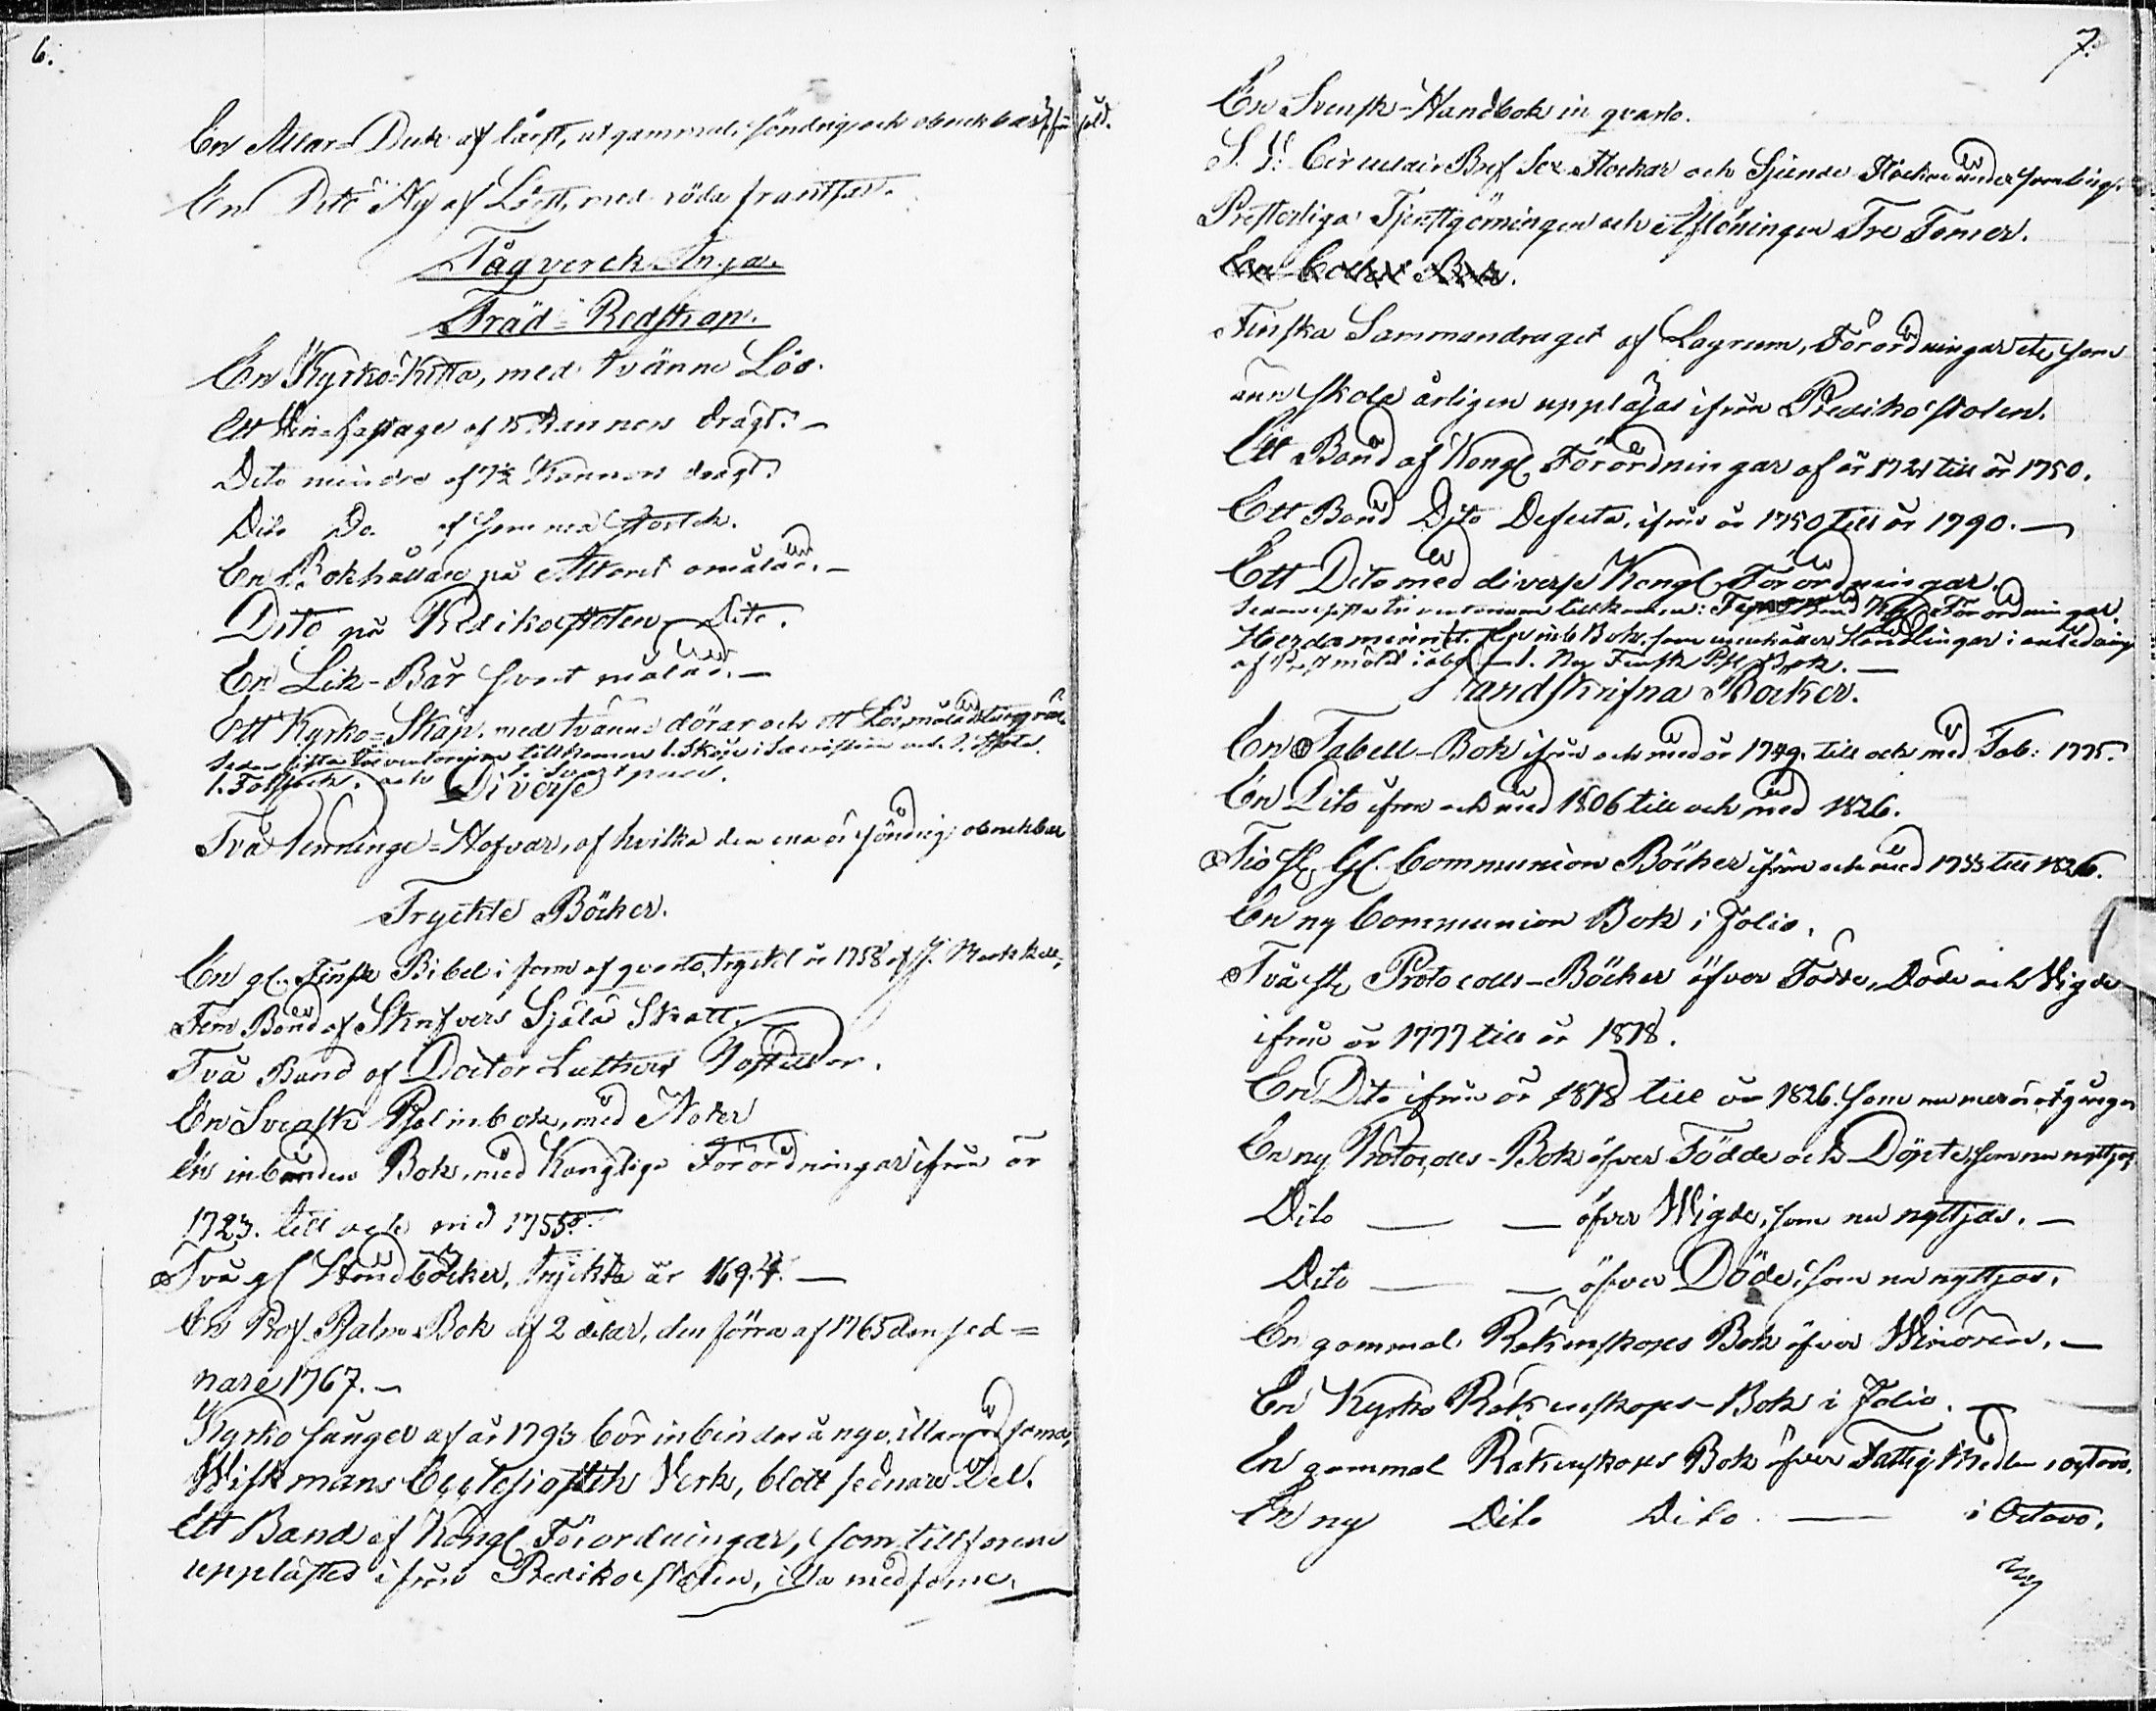 6.
En Altar=Duk af lärft, utgammal, söndrig och obrukbar,
En Dito Ny af Lärft, med röda frantsar.
Tågverck Inga.
Träd=Redskap.
En Kyrko=Kista, med tvänne Lås.
Ett Win=fastage af 15 Kannors drägt. —
Dito mindre af 7½ Kannors drägt.
Dito Do. af samma storlek.
En Bokhållare på Altaret omålad. —
Dito på Predikostolen Dito.
En Lik-Bår svart målad. —
Ett Kyrko=Skåp, med tvänne dörar och ett Lås, målad
Sedan sista Inventarium tillkommer 1. Skåp i Sacristian och 1. Stol
1. och
Diverse
Två Penninge=Hofvar, af hvilka den ena är söndrig obrukbar
Tryckte Böcker.
En gl. Finsk Bibel i form af quarto, tryckt år 1758 af J. Merckell,
Fem Band af Skrifvers Själa Skatt.
Två Band af Doctor Luthers Postillor.
En Svensk Psalmbok, med Noter
En inbunden Bok, med Kunglige Förordningar ifrån år
1723. till och med 1755.
Två gl Handböcker, tryckta år 1694. —
En Prof Psalm Bok af 2 delar, den förra af 1765 den sed=
nare 1767. —
Kyrko sånger af år 1793 bör inbindas å nyo.
Wiskmans Ecclesiastik Verk, blott sednare Del.
Ett Band af Kongl Förordningar, som tillförene
upplästes ifrån Predikostolen, illa medfarne,
7.
En Svensk-Handbok in quarto.
Circulair Bref Sex Stockar och Sjunde Stocken
Presterliga Tjenstgöringen och Aflöningen Tre Tomer.
Finska Sammandraget af Lagrum, Förordningar etc, som
ännu skola årligen uppläsas ifrån Predikostolen.
Ett Band af Kongl Förordningar af år 1721 till år 1750.
Ett Band Dito Defecta, ifrån år 1750 till år 1790. —
Ett Dito med diverse Kongl Förordningar.
Sedan sista Inventarium tillkommer: Band Kgl Förordningar.
Herdaminnet. Bok, som innehåller Handlingar i anledning
af 1. Ny Finsk Ps Bok. —
Handskrifna Böcker.
En Tabell-Bok ifrån och med år 1749. till och med Tab: 1775.
En Dito ifrån och med 1806 till och med 1826.
Tio St. Gl. Communion Böcker ifrån och med 1733 till 1826.
En ny Communion Bok i Folio.
Två St Protocolls-Böcker öfver Födde, Döde och Vigde
ifrån år 1777 till år 1818.
En Dito ifrån år 1818 till år 1826. som numer är utgången
En ny Protocolls-Bok öfver Födde och Döpte, som nu nyttjas
Dito — — öfver Wigde, som nu nyttjas. —
Dito — — öfver Döde, som nu nyttjas.
En gammal Räkenskaps Bok öfver Winören. —
En Kyrko Räkenskaps-Bok i Folio. —
En gammal Räkenskaps Bok öfver Fattig Medlen i octavo.
En ny Dito Dito — i Octavo.